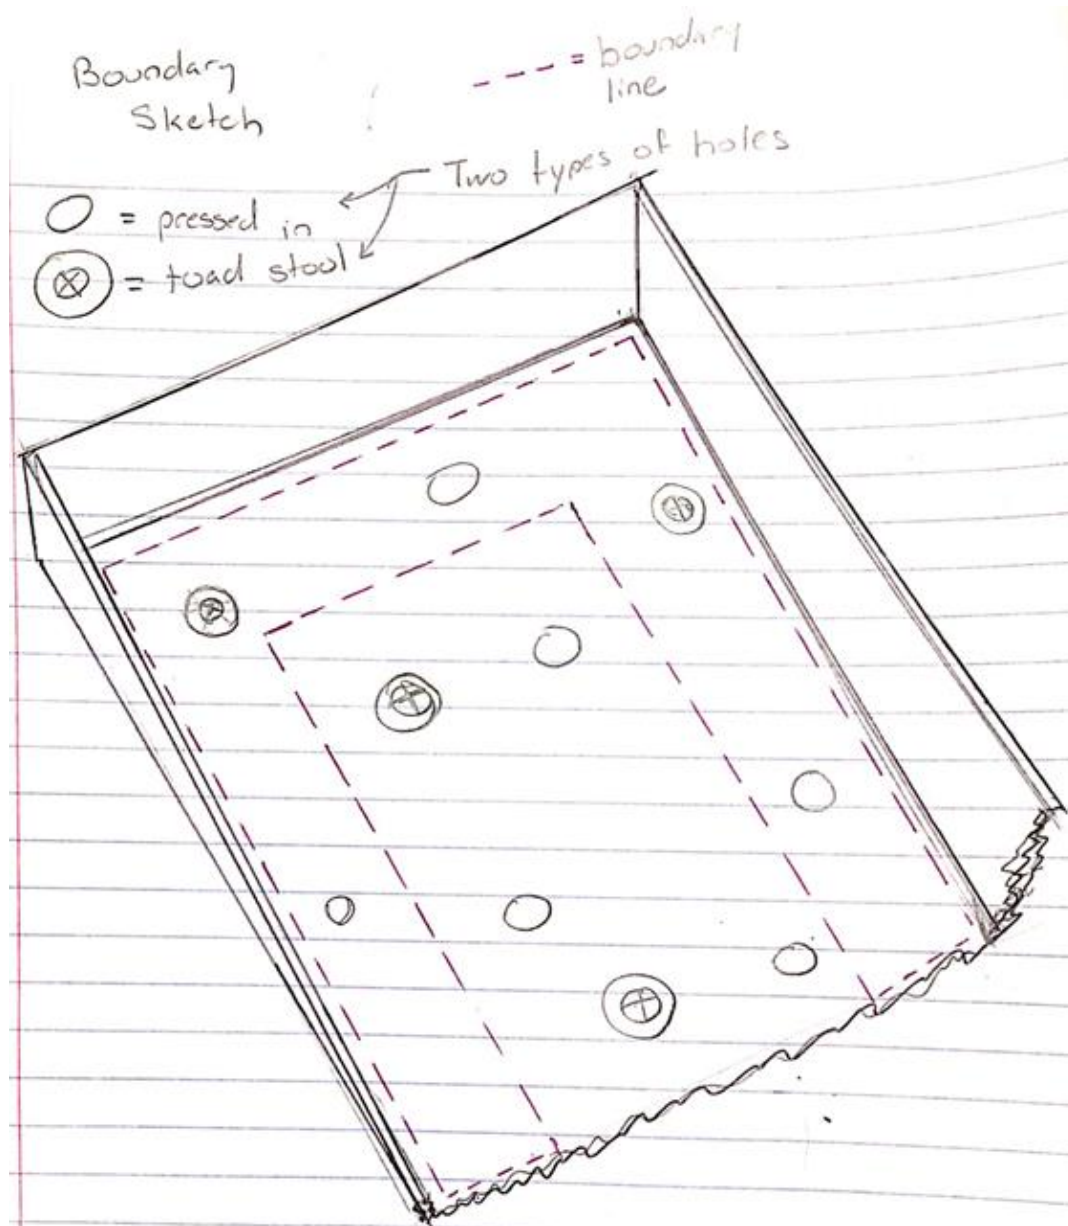 Boundary
Sketch
--- = boundary
line
Two types of holes
= pressed in
= toad stool